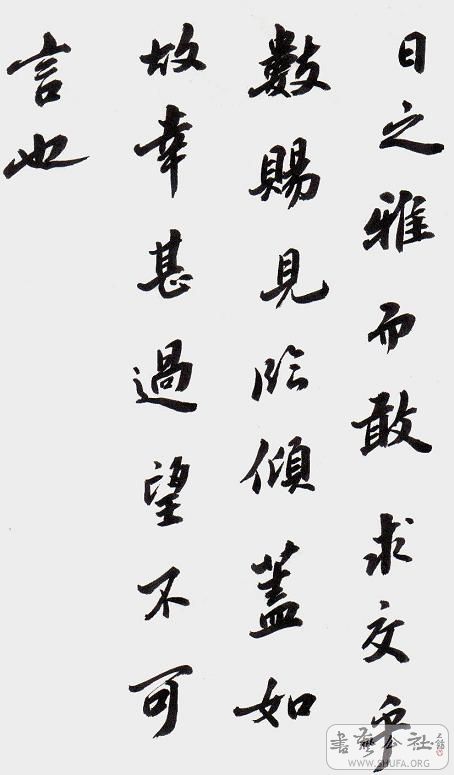 日之雅而敢求交乎
數賜見臨傾蓋如
故幸甚過望不可
言也
書藝公社
WWW.SHUFA.ORG